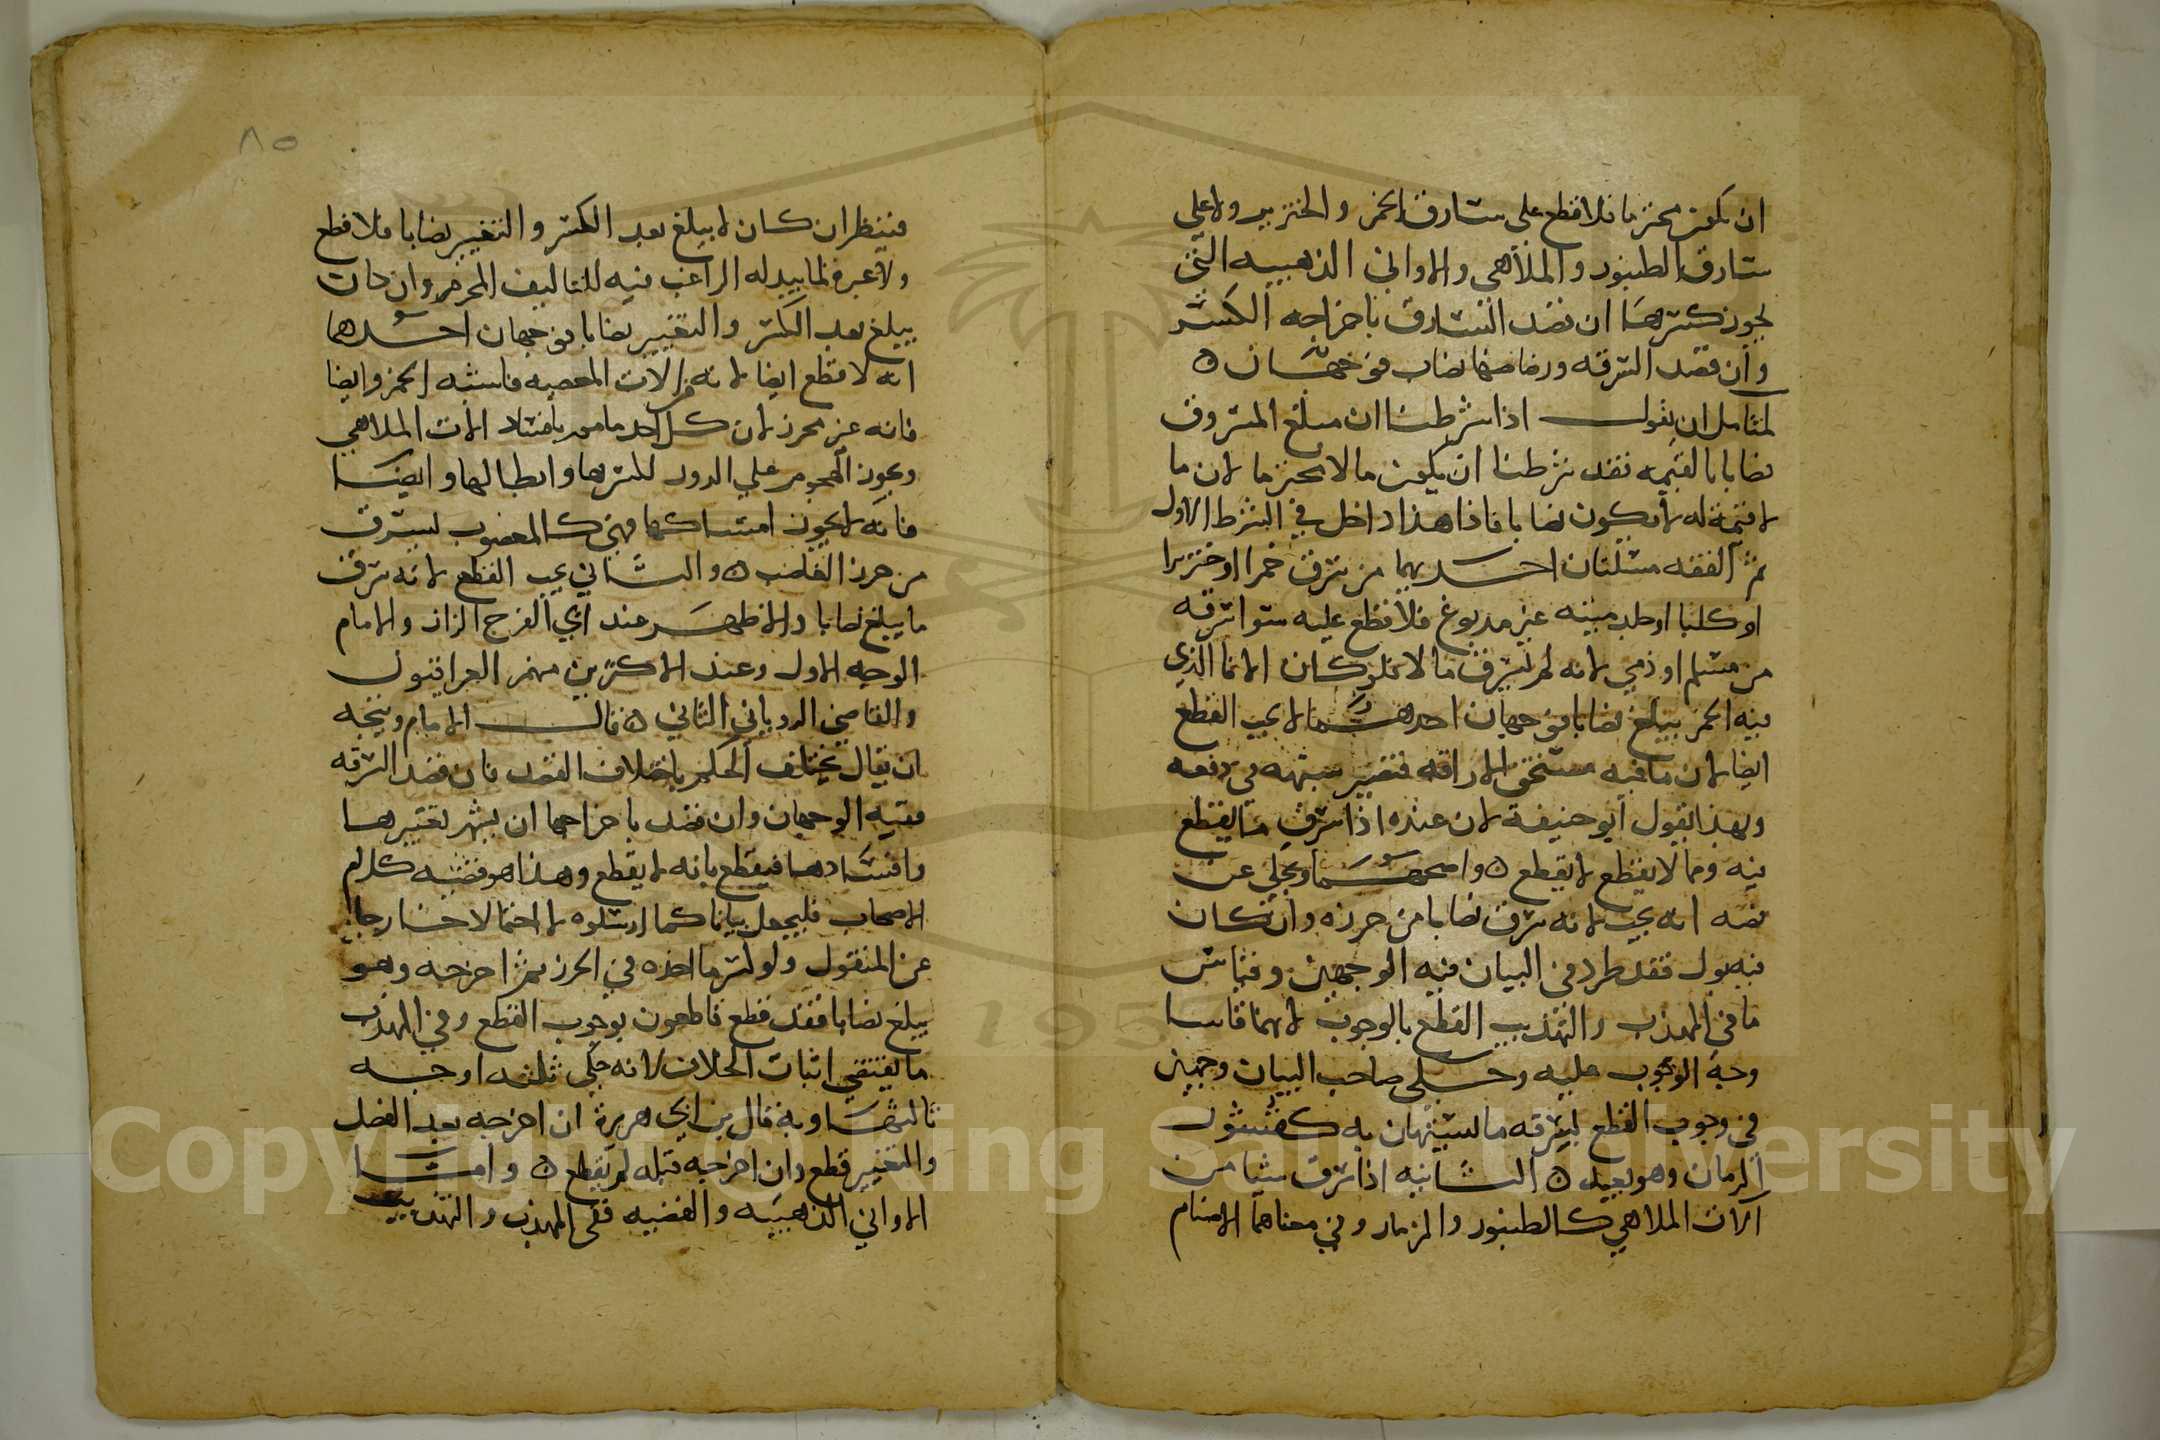 ان يكون محترما فلا قطع على سارق الخمر والخنزير ولا على
سارق الطنبور والملاهي والاواني الذهبيه التي
يجوز كسرها ان قصد السارق باخراجه الكسر
وان قصد السرقه ورضاضها نصاب فوجهان ه
لمتامل ان يقول اذا شرطنا ان مبلغ المسروق
نصابا بالقيمه فقد شرطنا ان يكون مالا محترما لان ما
لا قيمة له لا يكون نصابا فاذا هذا داخل في الشرط الاول
ثم الفقه مسئلتان احديهما من سرق خمرا او خنزيرا
او كلبا او جلد ميته غير مدبوغ فلا قطع عليه سوا سرقه
من مسلم او ذمي لانه لم يسرق مالا فلو كان الانا الذي
فيه الخمر يبلغ نصابا فوجهان احدهما لا يجب القطع
ايضا لان ما فيه مستحق الاراقه فتصير شبهه في دفعه
وبهذا يقول ابو حنيفة لان عنده اذا سرق ما يقطع
فيه وما لا يقطع لا يقطع ه واصحهما ويحكى عن
نصه انه يجب لانه سرق نصابا من حرزه وان كان
فيه بول فقد طرد في البيان فيه الوجهين وقياس
ما في المهذب والتهذيب القطع بالوجوب لانهما قاسا
وجه الوجوب عليه وحكى صاحب البيان وجهين
في وجوب القطع بسرقه ما يستهان به كقشور
الرمان وهو بعيد ه الثانيه اذا سرق شيا من
آلات الملاهي كالطنبور والمزمار وفي معناهما الاصنام
٨٥
فينظر ان كان لا يبلغ بعد الكسر والتغيير نصابا فلا قطع
ولا عبرة لما يبذله الراغب فيه للتاليف المحرم وان كان
يبلغ بعد الكسر والتغيير نصابا فوجهان احدهما
انه لا قطع ايضا لانه من الات المعصيه فاشبه الخمر وايضا
فانه غير محرز لان كل احد مامور بافساد الات الملاهي
ويجوز الهجوم على الدور لكسرها وابطالها وايضا
فانه لا يجوز امساكها فهي كالمغصوب يسرق
من حرز الغاصب ه والثاني يجب القطع لانه سرق
ما يبلغ نصابا والاظهر عند ابي الفرج الزاز والامام
الوجه الاول وعند الاكثرين منهم العراقيون
والقاضي الروياني الثاني ه قال الامام ويتجه
ان يقال يختلف الحكم باختلاف القصد فان قصد السرقه
ففيه الوجهان وان قصد باخراجها ان يشهر تغييرها
وافسادها فيقطع بانه لا يقطع وهذا هو قضيه كلام
الاصحاب فليجعل بيانا كما ارسلوه لا احتمالا خارجا
عن المنقول ولو كسر ما اخذه في الحرز ثم اخرجه وهو
يبلغ نصابا فقد قطع قاطعون بوجوب القطع وفي المهذب
ما يقتضي اثبات الخلاف لانه حكى ثلثه اوجه
ثالثها وبه قال بن ابي هريرة ان اخرجه بعد الفصل
والتغيير قطع وان اخرجه قبله لم يقطع ه واما
الاواني الذهبيه والفضيه ففي المهذب والتهذيب
Copyright © King Saud University
1957